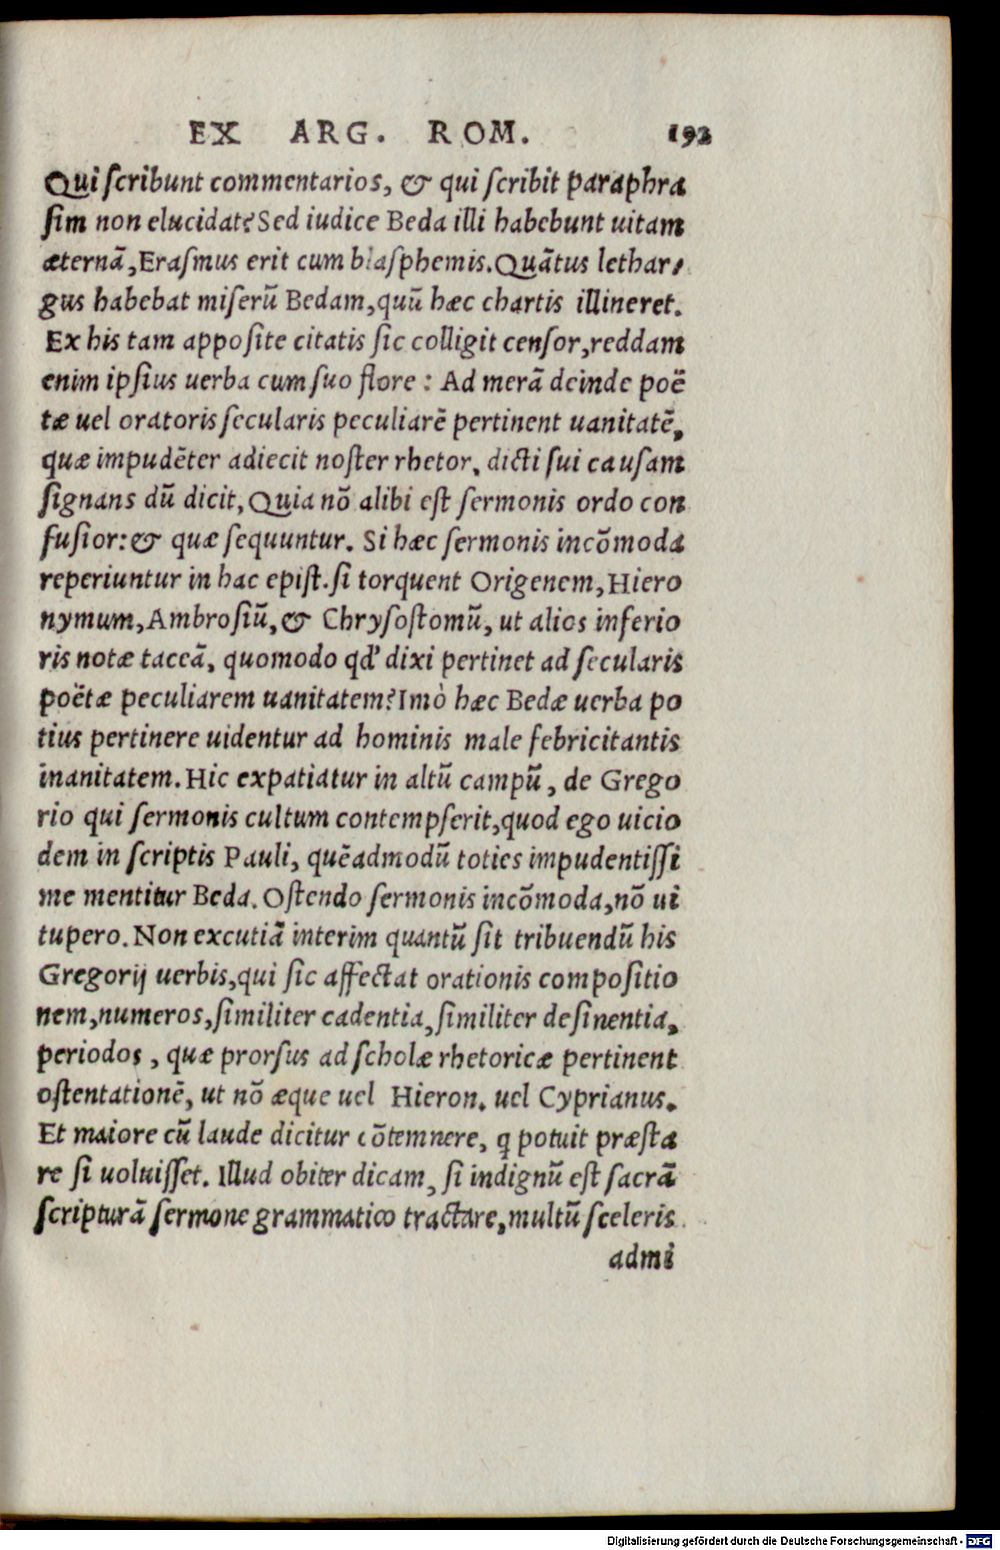 EX ARG. ROM. 192
Qui scribunt commentarios, & qui scribit paraphra
sim non elucidat? Sed iudice Beda illi habebunt uitam
æternã, Erasmus erit cum blasphemis. Quãtus lethar-
gus habebat miserũ Bedam, quũ hæc chartis illineret.
Ex his tam apposite citatis sic colligit censor, reddam
enim ipsius uerba cum suo flore : Ad merã deinde poë
tæ uel oratoris secularis peculiarẽ pertinent uanitatẽ,
quæ impudẽter adiecit noster rhetor, dicti sui causam
signans dũ dicit, Quia nõ alibi est sermonis ordo con
fusior: & quæ sequuntur. Si hæc sermonis incõmoda
reperiuntur in hac epist. si torquent Origenem, Hiero
nymum, Ambrosiũ, & Chrysostomũ, ut alios inferio
ris notæ taceã, quomodo qd' dixi pertinet ad secularis
poëtæ peculiarem uanitatem? Imò hæc Bedæ uerba po
tius pertinere uidentur ad hominis male febricitantis
inanitatem. Hic expatiatur in altũ campũ, de Grego
rio qui sermonis cultum contempserit, quod ego uicio
dem in scriptis Pauli, quẽadmodũ toties impudentissi
me mentitur Beda. Ostendo sermonis incõmoda, nõ ui
tupero. Non excutiã interim quantũ sit tribuendũ his
Gregorij uerbis, qui sic affectat orationis compositio
nem, numeros, similiter cadentia, similiter desinentia,
periodos, quæ prorsus ad scholæ rhetoricæ pertinent
ostentationẽ, ut nõ æque uel Hieron. uel Cyprianus.
Et maiore cũ laude dicitur cõtemnere, q potuit præsta
re si uoluisset. Illud obiter dicam, si indignũ est sacrã
scripturã sermone grammatico tractare, multũ sceleris
admi
Digitalisierung gefördert durch die Deutsche Forschungsgemeinschaft - DFG